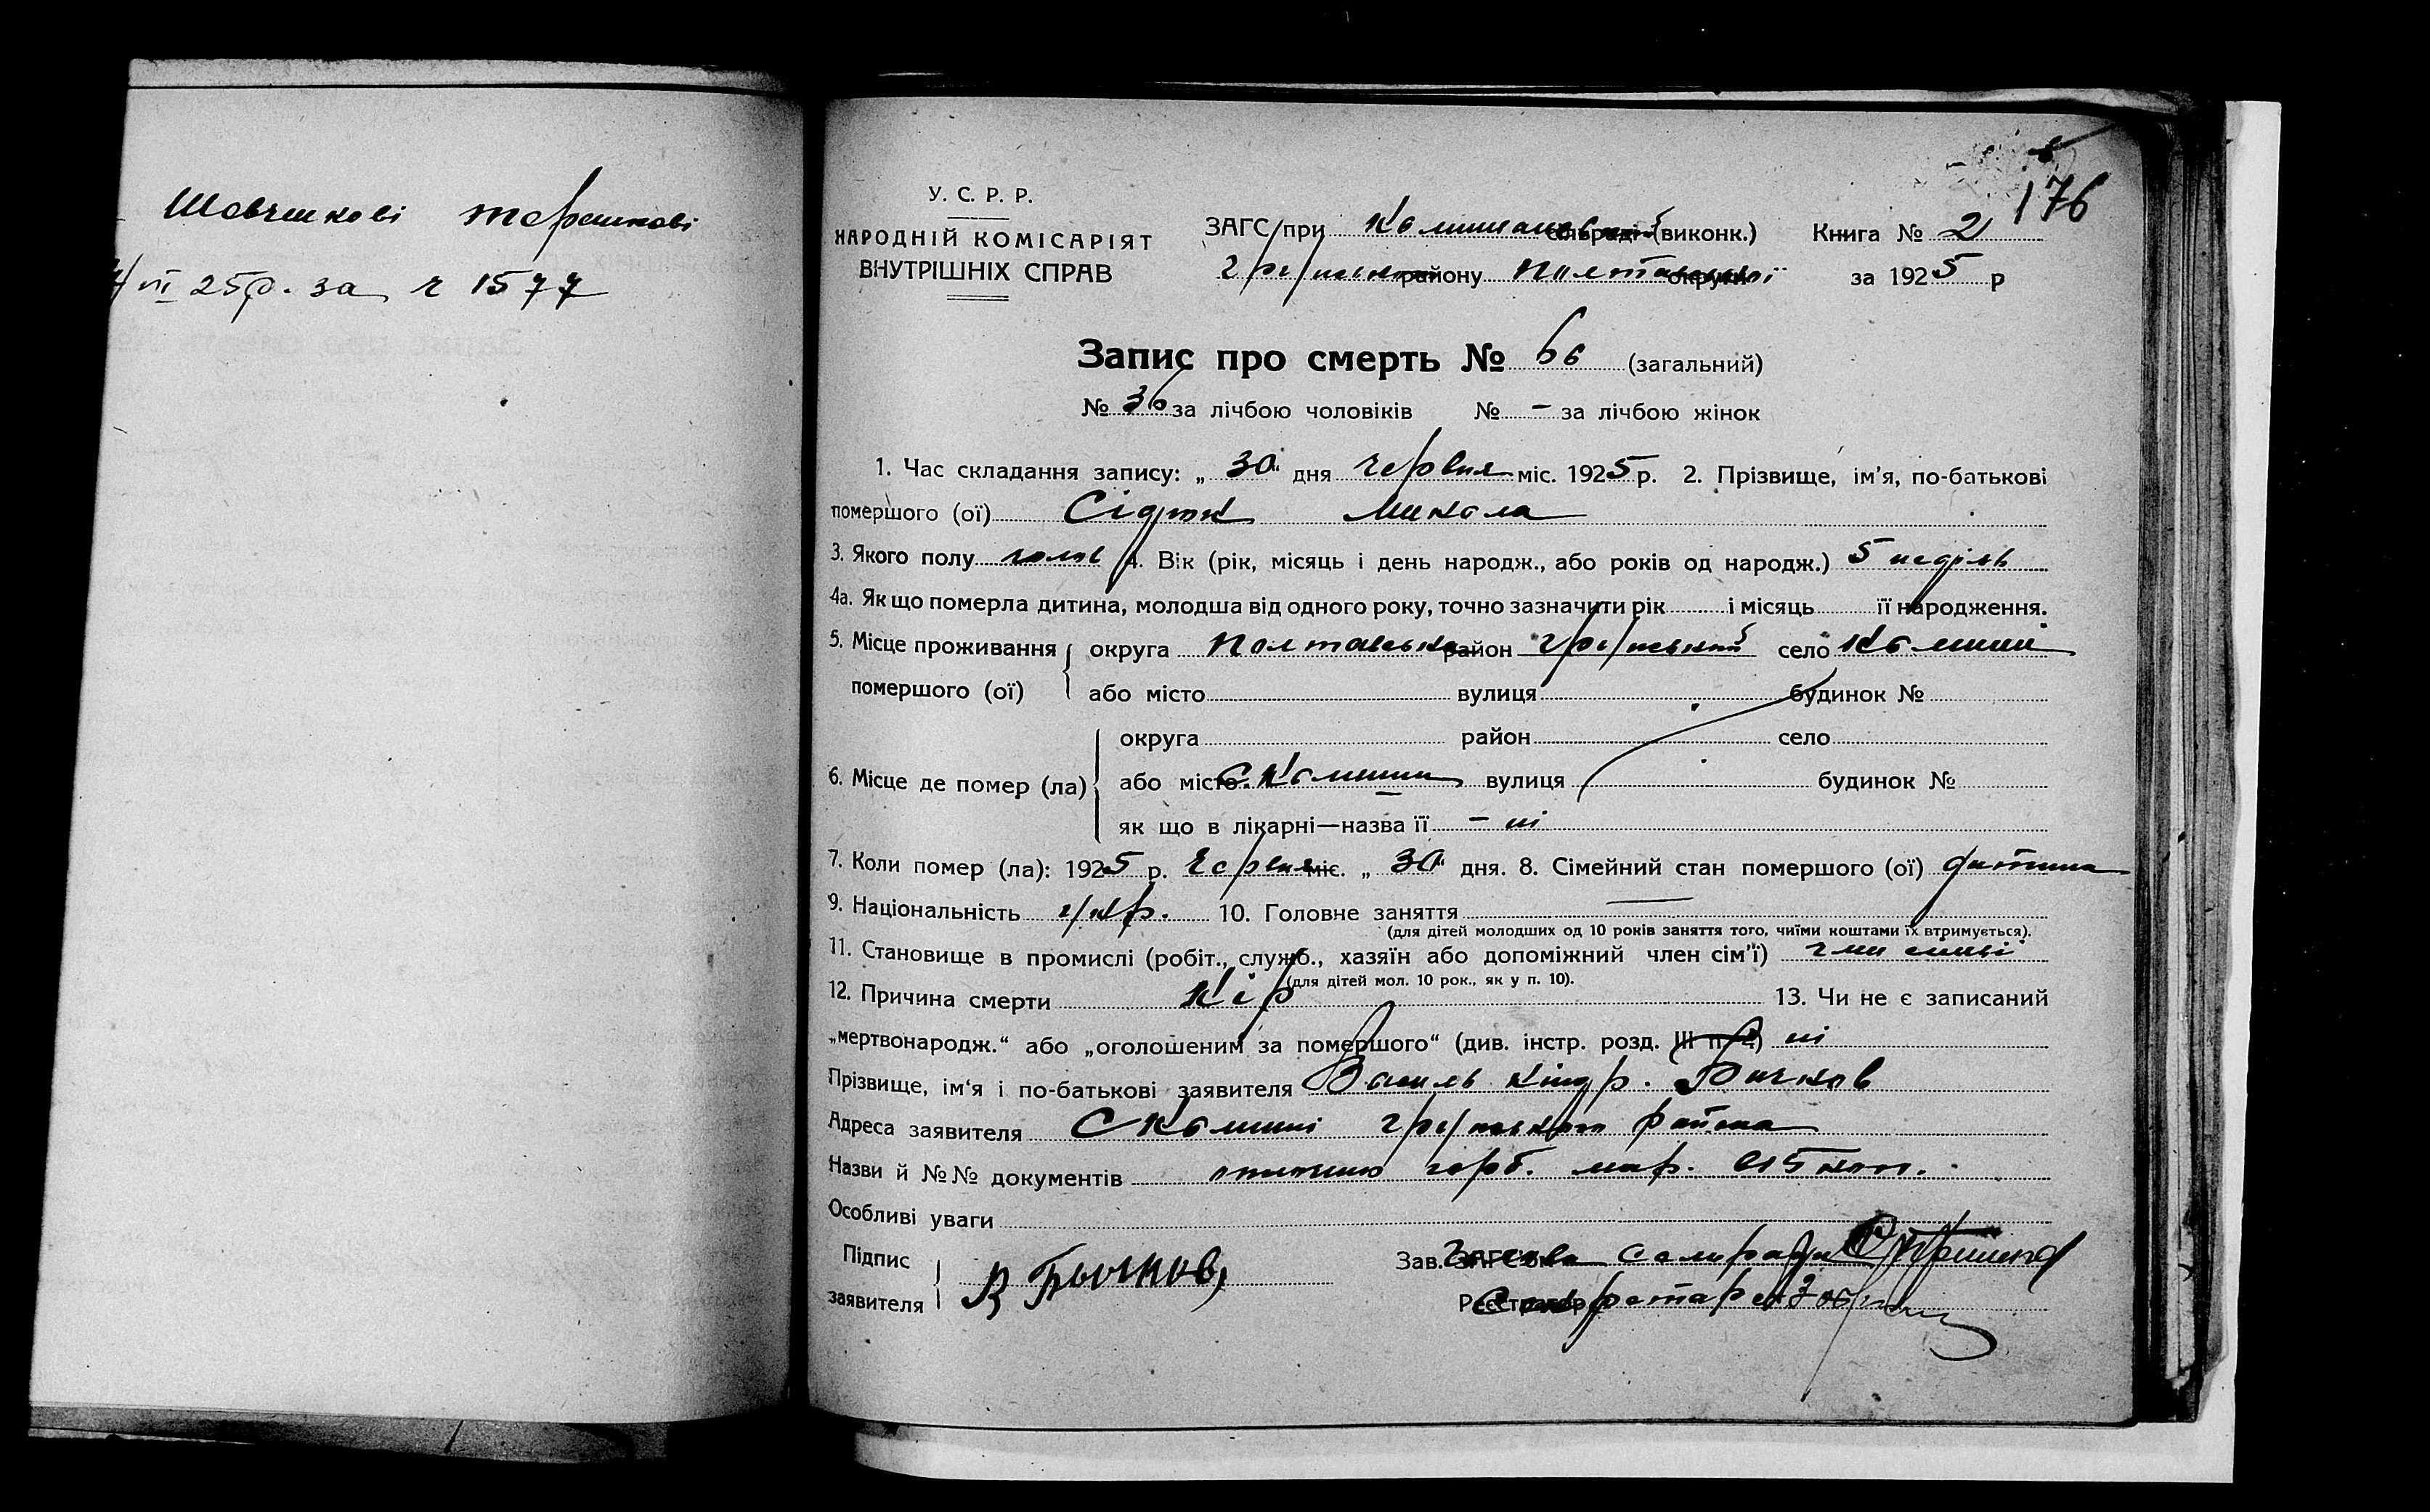 Шевченкові Терешкові
VII 25р. за ч 1577
176
У. С. Р. Р.
НАРОДНІЙ КОМІСАРІЯТ
ВНУТРІШНІХ СПРАВ
ЗАГС при сільраді (виконк.) Книга № 2
району Полтавської округи за 1925 р
Запис про смерть № 66 (загальний)
№ 36 за лічбою чоловіків № – за лічбою жінок
1. Час складання запису: „ 30 " дня червня міс. 1925 р. 2. Прізвище, ім'я, по-батькові
помершого (ої) Микола
3. Якого полу чолов 4. Вік (рік, місяць і день народж., або років од народж.) 5 неділь
4а. Як що померла дитина, молодша від одного року, точно зазначити рік і місяць її народження.
5. Місце проживання округа Полтавська район село
помершого (ої) або місто вулиця будинок №
округа район село
6. Місце де помер (ла) або місто вулиця будинок №
як що в лікарні—назва її – ні
7. Коли помер (ла): 1925 р. Червня міс. „ 30 " дня. 8. Сімейний стан помершого (ої) дитина
9. Національність укр. 10. Головне заняття —
(для дітей молодших од 10 років заняття того, чиїми коштами їх втримується).
11. Становище в промислі (робіт., служб., хазяїн або допоміжний член сім'ї) член сімьі
(для дітей мол. 10 рок., як у п. 10).
12. Причина смерти Кір 13. Чи не є записаний
„мертвонародж." або „оголошеним за помершого" (див. інстр. розд. III п. 4) ні
Прізвище, ім'я і по-батькові заявителя Василь Кіндр. Бичков
Адреса заявителя С району
Назви й №№ документів оплачено герб. мар. 15 коп.
Особливі уваги
Підпис заявителя В Бычков
Зав. ЗАГС'ом Голова Сельради
Реєстратор Секретарь